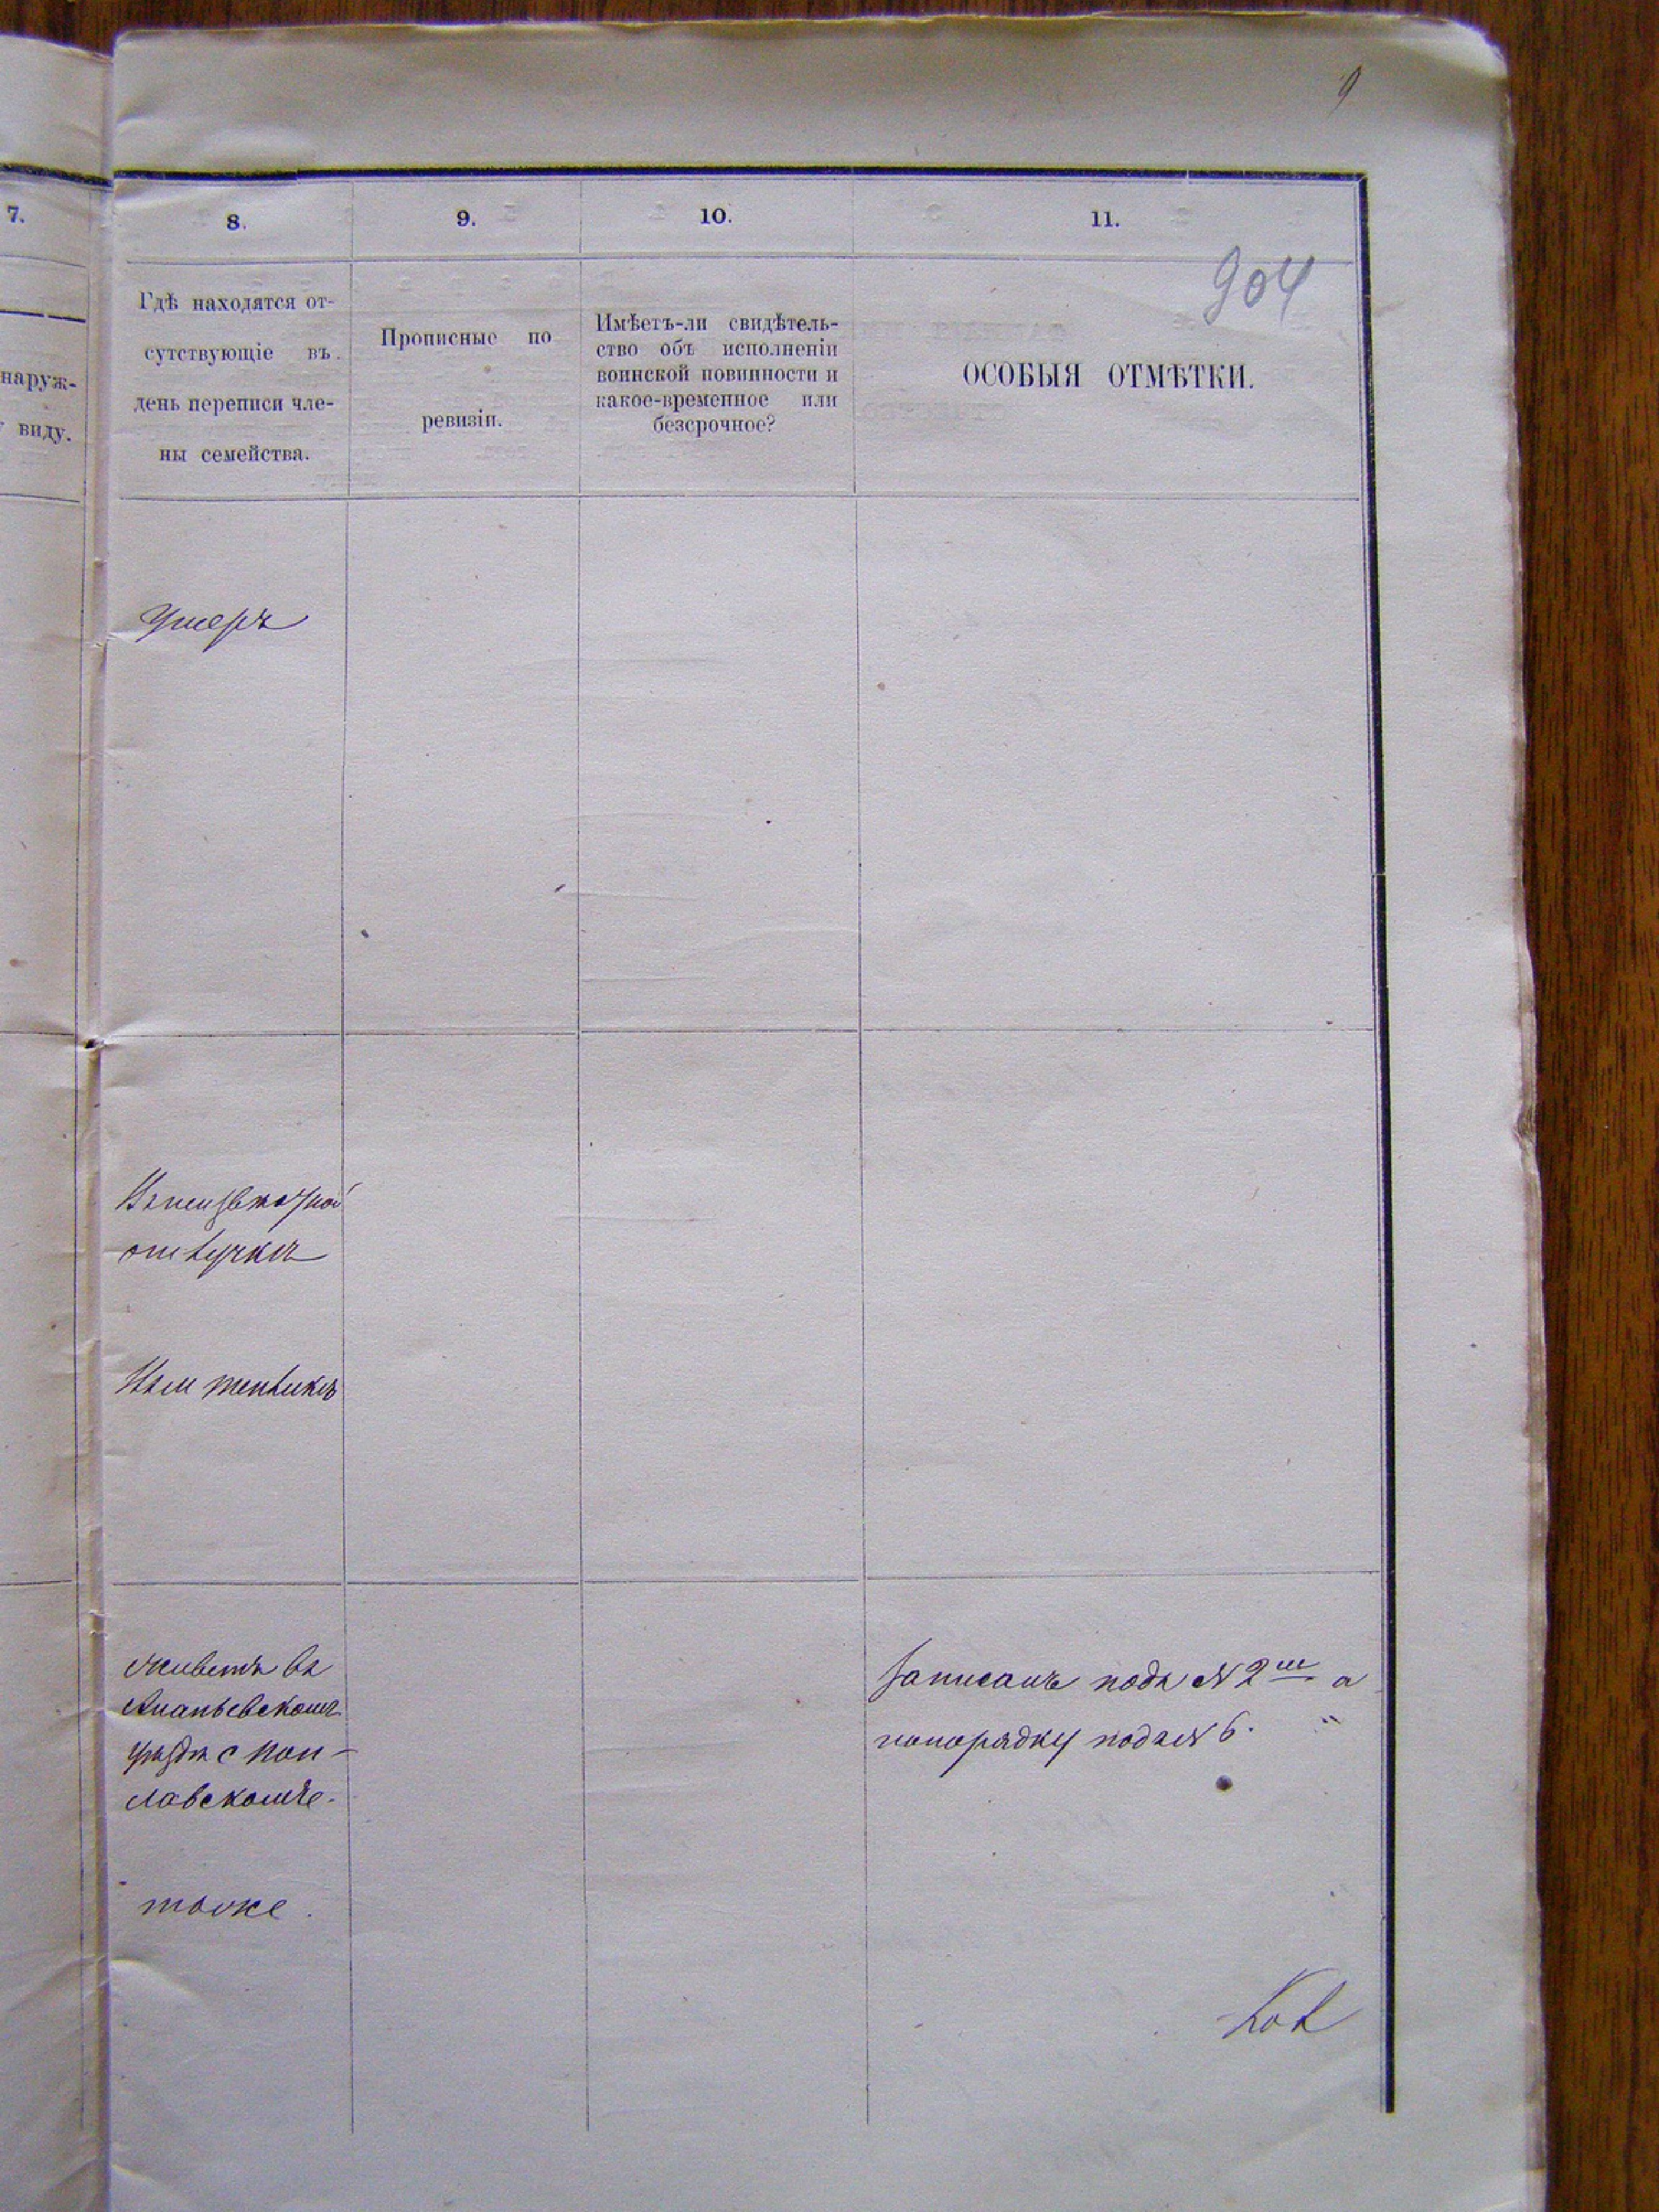 9
7.
8.
9.
10.
11.
904
наруж-
виду.
Гдѣ находятся от-
сутствующіе въ
день переписи чле-
ны семейства.
Прописные по
ревизіи.
Имѣетъ-ли свидѣтель-
ство объ исполненіи
воинской повинности и
какое-временное или
безсрочное?
ОСОБЫЯ ОТМѢТКИ.
Умеръ
отлучкѣ
живетъ въ
Ананьевскомъ
уѣздѣ с Пон-
лавскомъе.
тоже.
Записанъ подъ № 2ш а
попорядку под № 6.